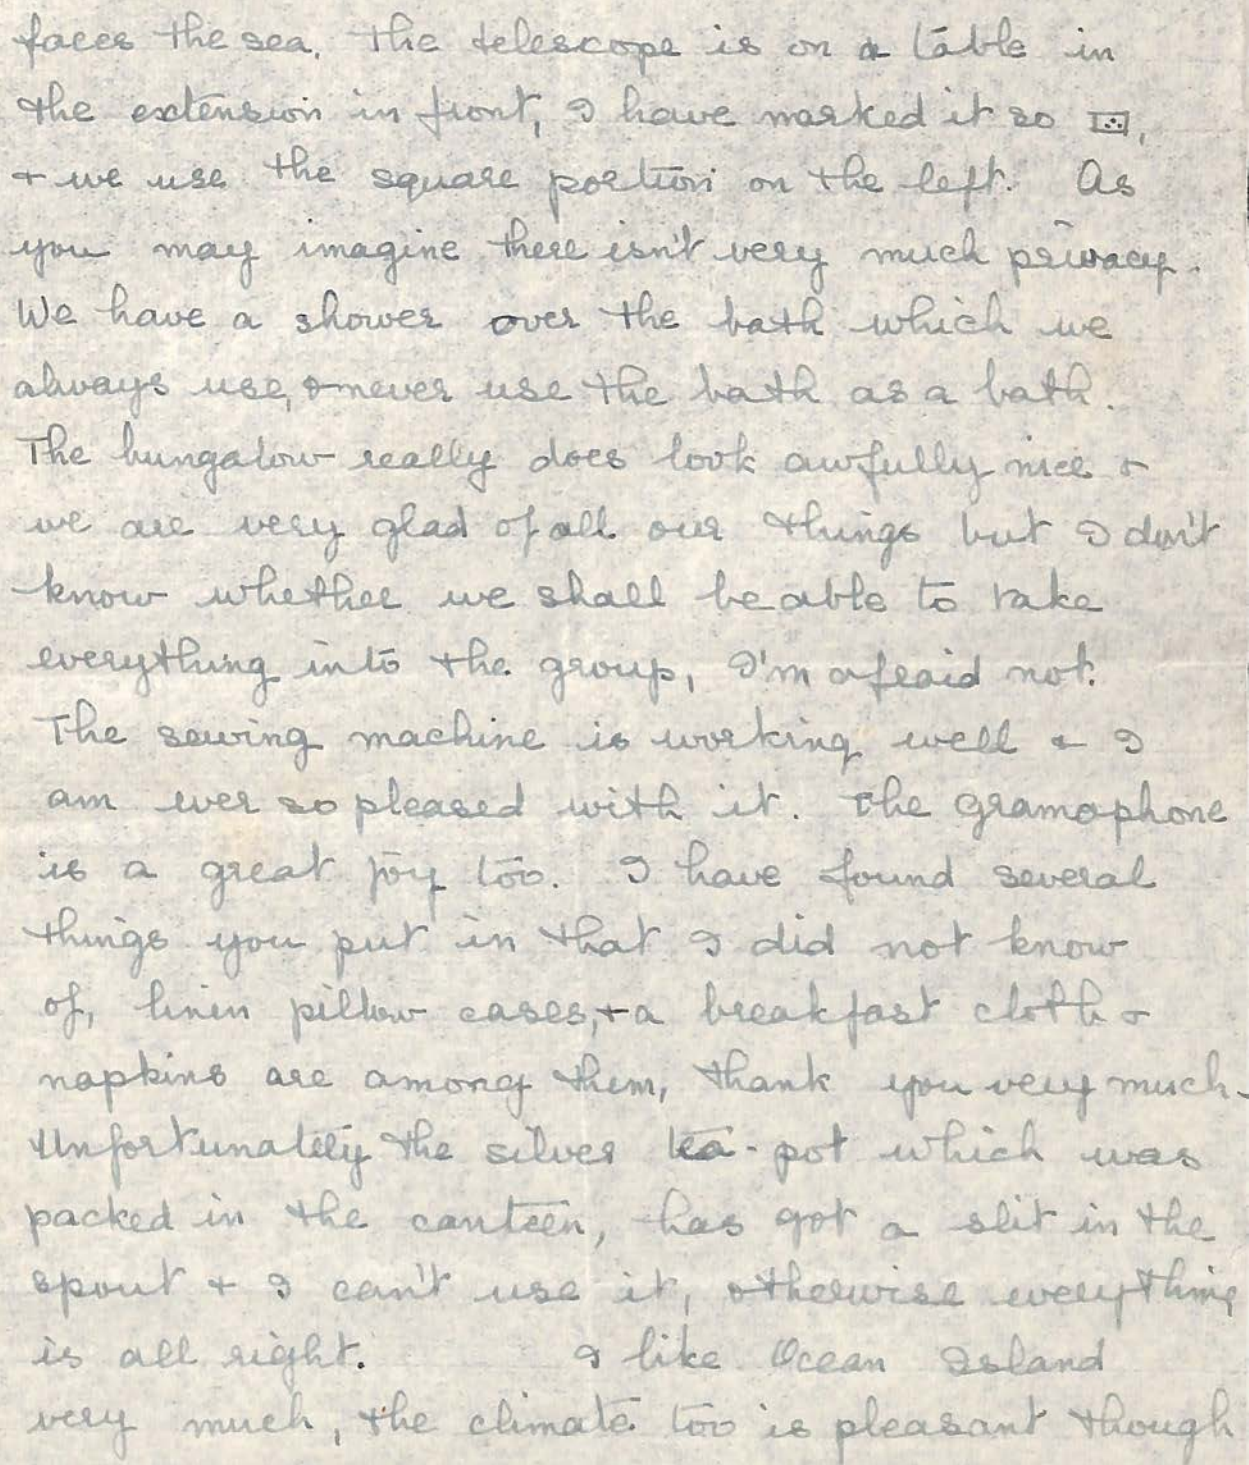 faces the sea. The telescope is on a table in
the extension in front, I have marked it so ,
+ we use the square portion on the left. As
you may imagine there isn't very much privacy.
We have a shower over the bath which we
always use, & never use the bath as a bath.
The bungalow really does look awfully nice &
we are very glad of all our things but I don't
know whether we shall be able to take
everything into the group, I'm afraid not.
The sewing machine is working well & I
am ever so pleased with it. The gramophone
is a great joy too. I have found several
things you put in that I did not know
of, linen pillow cases, + a breakfast cloth &
napkins are among them, thank you very much.
Unfortunately the silver tea-pot which was
packed in the canteen, has got a slit in the
spout + I can't use it, otherwise everything
is all right. I like Ocean Island
very much, the climate too is pleasant though